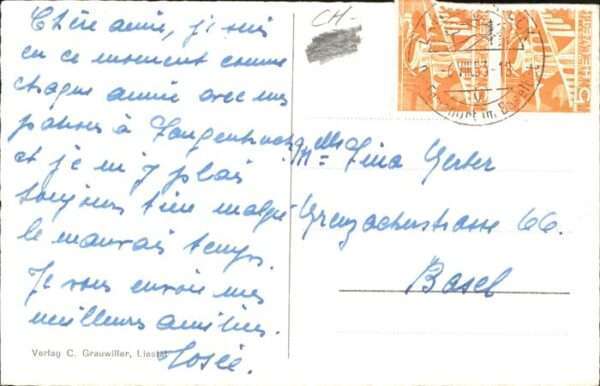 Chère amie, je suis
en ce moment comme
chaque année avec mes
patrons à Langenbruck
et je m'y plais
toujours bien malgré
le mauvais temps.
Je vous envoie mes
meilleurs amitiés.
Josée.
CH-
HELVETIA
5
Mlle Lina Gerter
Grenzacherstrasse 66.
Basel
Verlag C. Grauwiller, Liestal